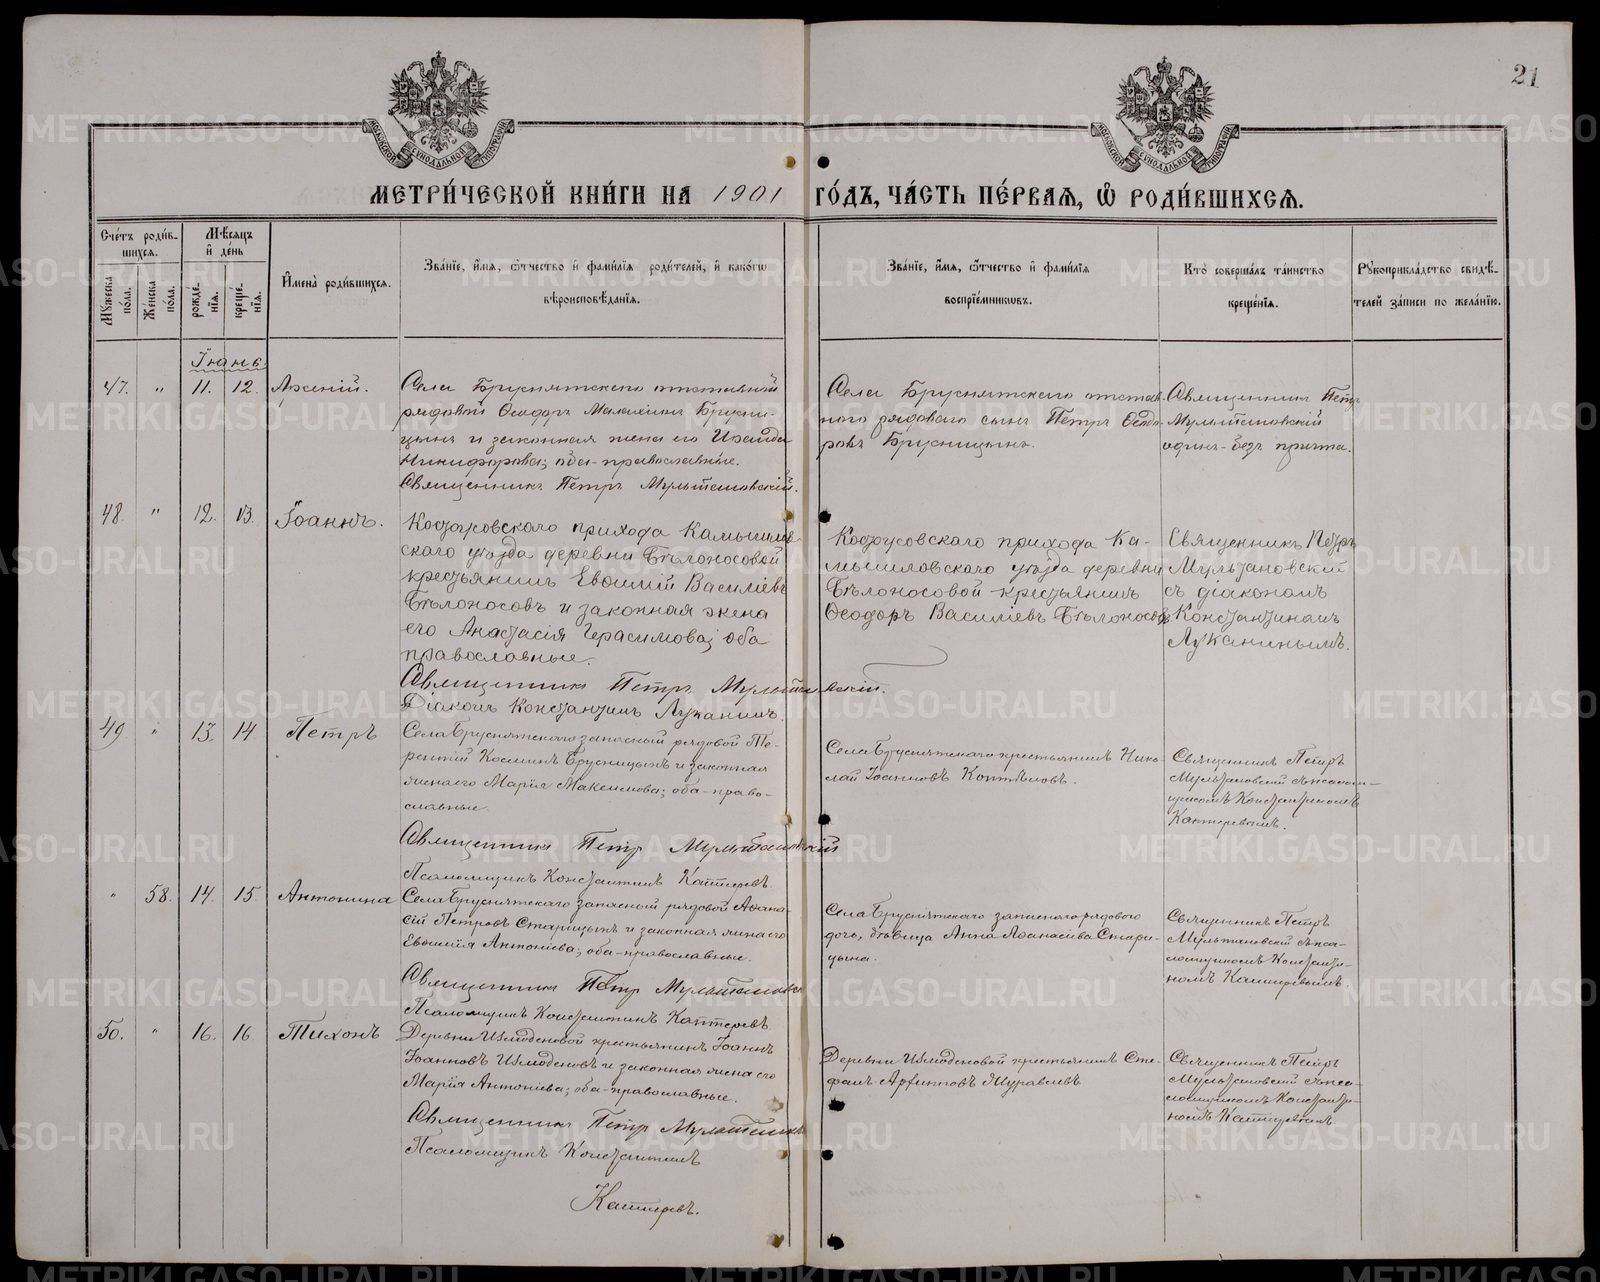 21
МОСКОВСКОЙ СѴНОДАЛЬНОЙ ТИПОГРАФІИ
МОСКОВСКОЙ СѴНОДАЛЬНОЙ ТИПОГРАФІИ
МЕТРИ́ЧЕСКОЙ КНИ́ГИ НА 1901 ГО́ДЪ, ЧА́СТЬ ПЕ́РВАЯ, Ѡ РОДИ́ВШИХСЯ.
Сче́тъ роди́в-
шихся.
Му́жеска по́ла.
Же́нска по́ла.
Мѣ́сяцъ
и҆ де́нь
рожде́-
нія.
креще́-
нія.
И҆мена̀ роди́вшихся.
Зва́ніе, и҆́мя, ѻ҆́тчество и҆ фами́лія роди́телей, и҆ како́гѡ
вѣроисповѣ́данія.
Зва́ніе, и҆́мя, ѻ҆́тчество и҆ фами́лія
воспріе́мниковъ.
Кто̀ соверша́лъ та́инство
креще́нія.
Рꙋкоприкла́дство свидѣ́-
телей за́писи по жела́нію.
Іюнь
47. " 11. 12. Арсеній.
Села Бруснятскаго отставной
рядовой Ѳеодоръ Малахіинъ Брусни-
цынъ и законная жена его Ираида
Никифорова; оба православные.
Священникъ Петръ Мультановскій.
Села Бруснятскаго отстав-
ного рядоваго сынъ Петръ Ѳеодо-
ровъ Брусницынъ.
Священникъ Петръ
Мультановскій
одинъ-безъ причта.
48. " 12. 13. Іоаннъ.
Кочнусовскаго прихода Камышлов-
скаго уѣзда деревни Бѣлоносовой
крестьянинъ Евѳимій Василіевъ
Бѣлоносовъ и законная жена
его Анастасія Герасимова; оба
православные.
Священникъ Петръ Мультановскій.
Діаконъ Константинъ Луканинъ.
прихода Ка-
мышловскаго уѣзда деревни
Бѣлоносовой крестьянинъ
Ѳеодоръ Василіевъ Бѣлоносовъ.
Священникъ Петръ
Мультановскій
съ діакономъ
Константиномъ
Луканинымъ.
49 " 13. 14 Петръ
Села Бруснятскаго запасный рядовой Те-
рентій Косминъ Брусницынъ и законная
жена его Марія Максимова; оба-право-
славные.
Священникъ Петръ Мультановскій
Псаломщикъ Константинъ Каптеревъ.
Села Бруснятскаго крестьянинъ Нико-
лай Іоанновъ Коптѣловъ.
Священникъ Петръ
Мультановскій съ псалом-
щикомъ Константиномъ
Каптеревымъ.
" 58. 14. 15. Антонина
Села Бруснятскаго запасный рядовой Аѳана-
сій Петровъ Старицынъ и законная жена его
Евѳимія Антоніева; оба-православные.
Священникъ Петръ Мультановскій
Псаломщикъ Константинъ Каптеревъ.
Села Бруснятскаго запасного рядового
дочь, дѣвица Анна Аѳанасіева Стари-
цына.
Священникъ Петръ
Мультановскій съ пса-
ломщикомъ Константи-
номъ Каптеревымъ.
50. " 16. 16 Тихонъ
Деревни Измоденовой крестьянинъ Іоаннъ
Іоанновъ Измоденовъ и законная жена его
Марія Антоніева; оба-православные.
Священникъ Петръ Мультановскій
Псаломщикъ Константинъ
Каптеревъ.
Деревни Измоденовой крестьянинъ Сте-
фанъ Муравлевъ
Священникъ Петръ
Мультановскій съ пса-
ломщикомъ Константи-
номъ Каптеревымъ.
METRIKI.GASO-URAL.RU